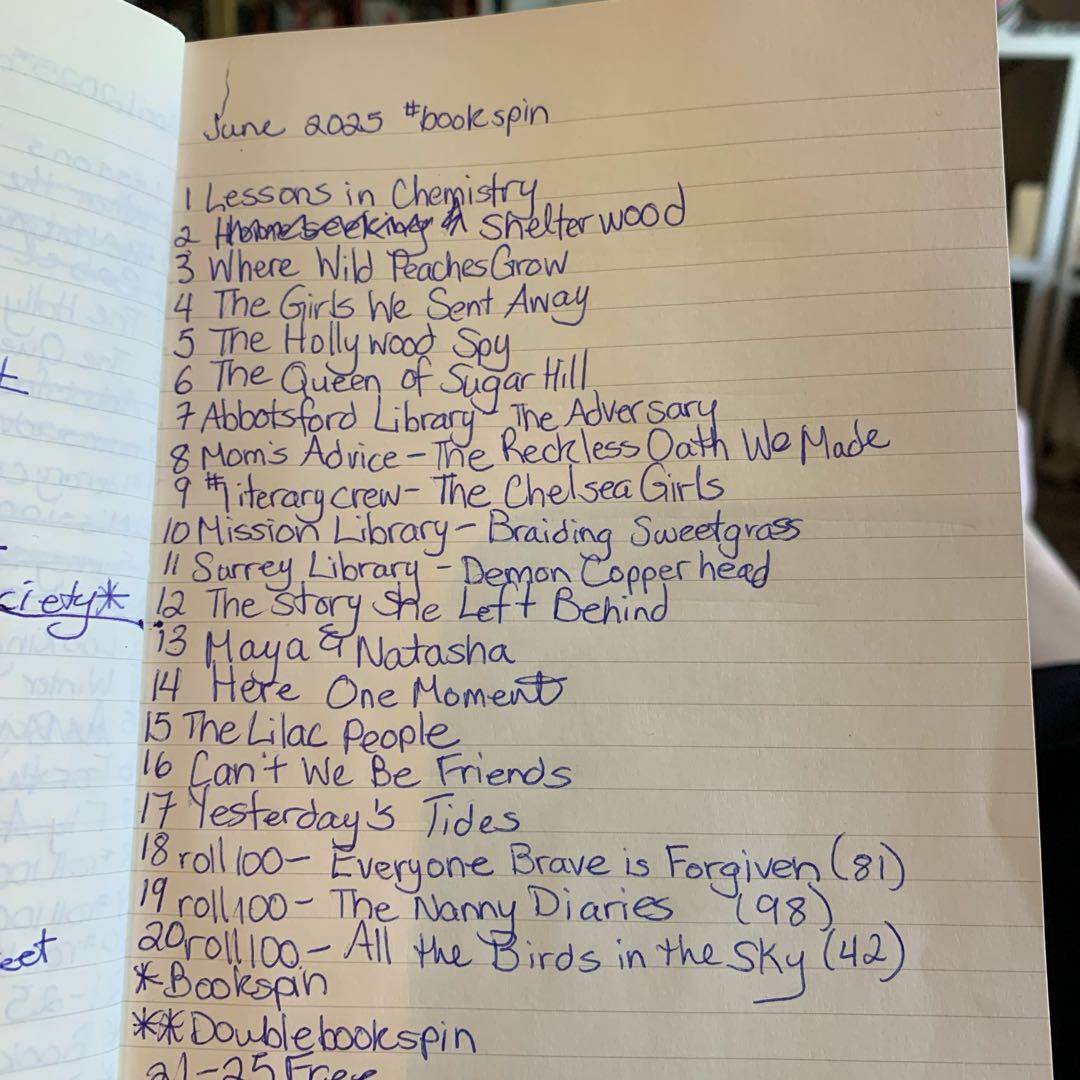 June 2025 #bookspin
1 Lessons in Chemistry
2 Homeseeking Shelterwood
3 Where Wild Peaches Grow
4 The Girls We Sent Away
5 The Hollywood Spy
6 The Queen of Sugar Hill
7 Abbotsford Library - The Adversary
8 Mom's Advice - The Reckless Oath We Made
9 #literarycrew - The Chelsea Girls
10 Mission Library - Braiding Sweetgrass
11 Surrey Library - Demon Copperhead
ciety*
12 The Story She Left Behind
13 Maya & Natasha
14 Here One Moment
15 The Lilac People
16 Can't We Be Friends
17 Yesterday's Tides
18 roll100 - Everyone Brave is Forgiven (81)
19 roll100 - The Nanny Diaries (98)
eet
20 roll100 - All the Birds in the Sky (42)
*Bookspin
**Doublebookspin
21-25 Free